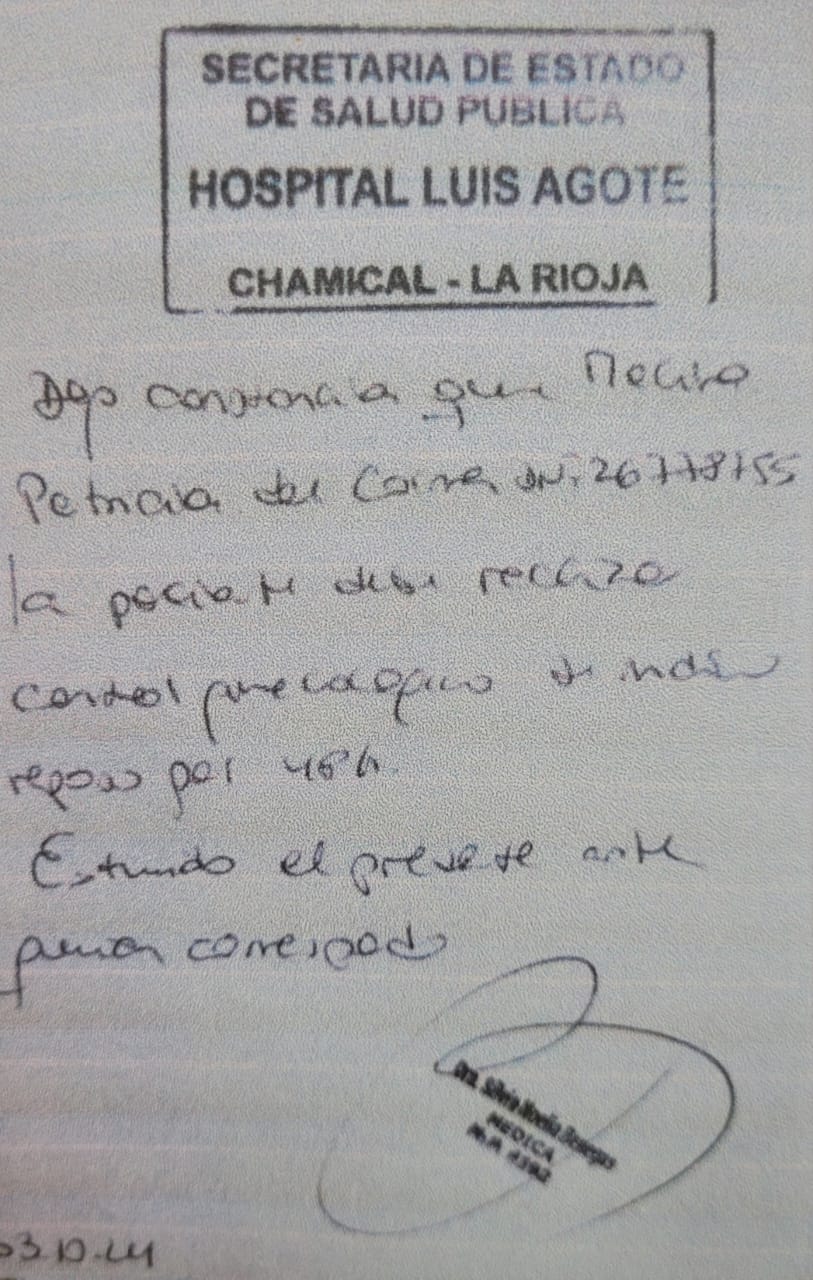 SECRETARIA DE ESTADO
DE SALUD PUBLICA
HOSPITAL LUIS AGOTE
CHAMICAL - LA RIOJA
Dejo constancia que
Patricia del DNI: 26778755
la paciente debe realizar
control ginecologico se indica
reposo por 48h.
Extiendo el presente ante
quien corresponda
Dra. Silvia Noelia
MEDICA
03.10.24